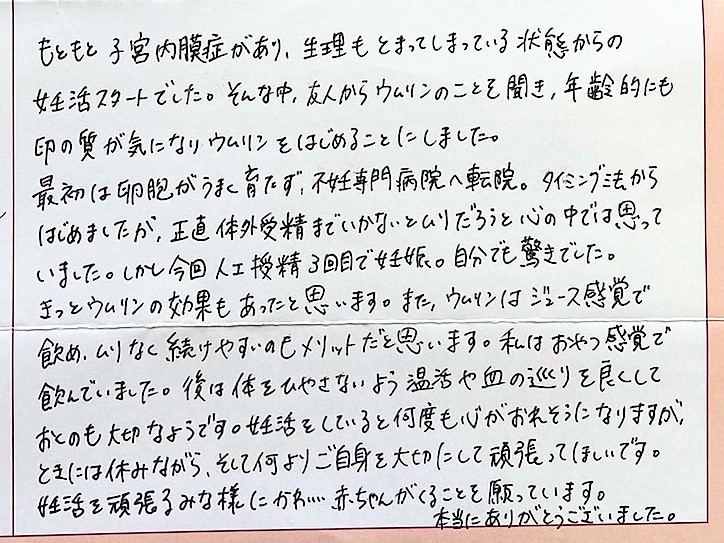 もともと子宮内膜症があり、生理もとまってしまっている状態からの
妊活スタートでした。そんな中、友人からウムリンのことを聞き、年齢的にも
卵の質が気になりウムリンをはじめることにしました。
最初は卵胞がうまく育たず、不妊専門病院へ転院。タイミング法から
はじめましたが、正直体外受精までいかないとムリだろうと心の中では思って
いました。しかし今回人工授精3回目で妊娠。自分でも驚きでした。
きっとウムリンの効果もあったと思います。また、ウムリンはジュース感覚で
飲め、ムリなく続けやすいのもメリットだと思います。私はおやつ感覚で
飲んでいました。後は体をひやさないよう温活や血の巡りを良くして
おくのも大切なようです。妊活をしていると何度も心がおれそうになりますが、
ときには休みながら、そして何よりご自身を大切にして頑張ってほしいです。
妊活を頑張るみな様にかわいい赤ちゃんがくることを願っています。
本当にありがとうございました。